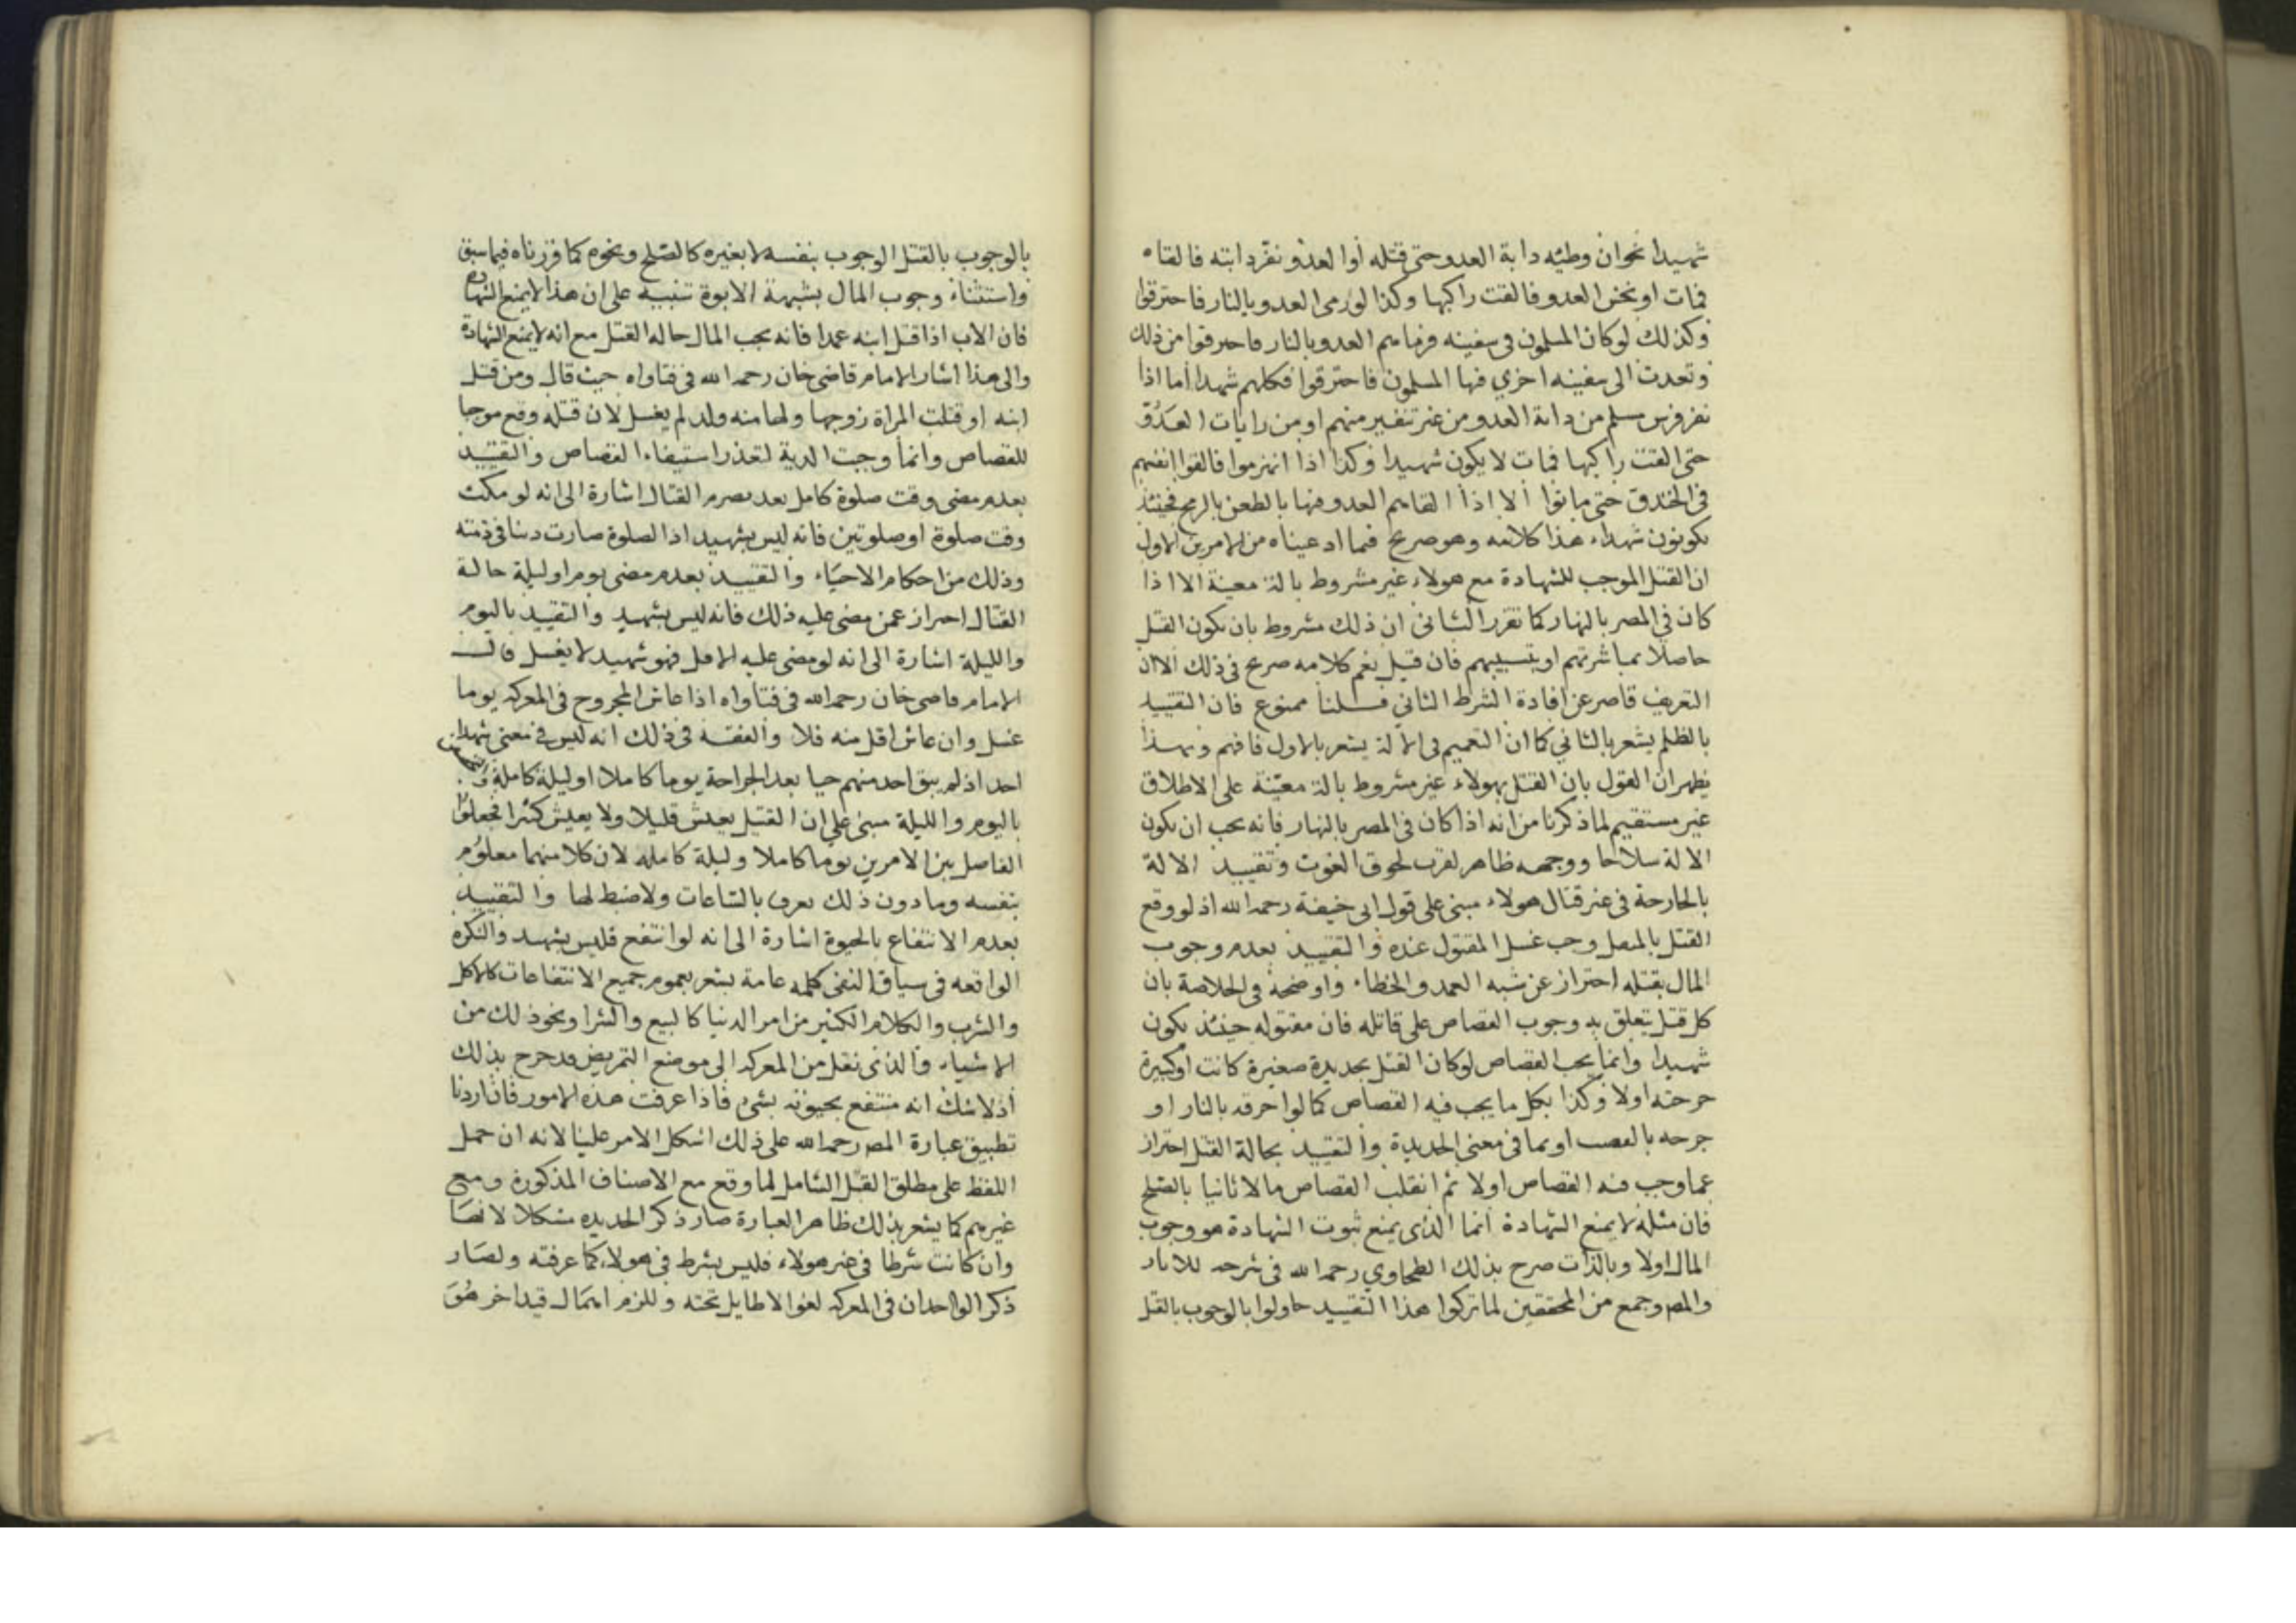 شهيدا نحو ان وطئه دابة العدو حتى قتله أو العدو نفر دابته فالقاه
فمات او نخس العدو فالقت راكبها وكذا لو رمى العدو بالنار فاحترقوا
وكذلك لو كان المسلمون فى سفينه فرماهم العدو بالنار فاحترقوا من ذلك
وتعدت الى سفينه اخري فيها المسلمون فاحترقوا فكلهم شهدا أما اذا
نفر فرس مسلم من دابة العدو من غير تنفير منهم او من رايات العَدُوّ
حتى القت راكبها فمات لا يكون شهيدا وكذا اذا انهزموا فالقوا انفسهم
فى الخندق حتى ماتوا الا اذا القاهم العدو فيها بالطعن بالرمح فحينئذ
يكونون شهداء هذا كلامه وهو صريح فيما ادعيناه من الامرين الاول
ان القتل الموجب للشهادة مع هولاء غير مشروط بالة معينة الا اذا
كان في المصر بالنهار كما تقرر الثانى ان ذلك مشروط بان يكون القتل
حاصلا بمباشرتهم او بتسبيبهم فان قيل نعم كلامه صريح فى ذلك الا ان
التعريف قاصر عن افادة الشرط الثاني قلنا ممنوع فان التقييد
بالظلم يشعر بالثاني كما ان التعميم فى الآلة يشعر بالاول فافهم وبهذا
يظهر ان القول بان القتل بهولاء غير مشروط بالة معيّنة على الاطلاق
غير مستقيم لما ذكرنا من انه اذا كان فى المصر بالنهار فانه يجب ان يكون
الالة سلاحا ووجهه ظاهر لقرب لحوق الغوث وتقييد الالة
بالجارحة فى غير قتال هولاء مبنى على قول ابى حنيفة رحمه الله اذ لو وقع
القتل بالمثقل وجب غسل المقتول عنده والتقييد بعدم وجوب
المال بقتله احتراز عن شبه العمد والخطا. واوضحه في الخلاصة بان
كل قتل يتعلق به وجوب القصاص على قاتله فان مقتوله حينئذ يكون
شهيدا وانما يجب القصاص لو كان القتل بحديدة صغيرة كانت او كبيرة
جرحته اولا وكذا بكل ما يجب فيه القصاص كما لو احرقه بالنار او
جرحه بالقصب او بما فى معنى الحديدة والتقييد بحالة القتل احتراز
عما وجب فيه القصاص اولا ثم انقلب القصاص مالا ثانيا بالصلح
فان مثله لا يمنع الشهادة انما الذى يمنع ثبوت الشهادة هو وجوب
المال اولا وبالذات صرح بذلك الطحاوي رحمه الله فى شرحه للاثار
والمص وجمع من المحققين لما تركوا هذا التقييد حاولوا بالوجوب بالقتل
بالوجوب بالقتل الوجوب بنفسه لا بغيره كالصلح ونحوه كما قررناه فيما سبق
واستثناء وجوب المال بشبهة الابوة تنبيه على ان هذا لا يمنع الشهادة
فان الاب اذا قتل ابنه عمدا فانه يجب المال حاله القتل مع انه لا يمنع الشهادة
والى هذا اشار الامام قاضى خان رحمه الله فى فتاواه حيث قال ومن قتل
ابنه او قتلت المراة زوجها ولها منه ولد لم يغسل لان قتله وقع موجبا
للقصاص وانما وجبت الدية لتعذر استيفاء القصاص والتقييد
بعدم مضى وقت صلوة كامل بعد تصرم القتال اشارة الى انه لو مكث
وقت صلوة او صلوتين فانه ليس بشهيد اذ الصلوة صارت دينا فى ذمته
وذلك من احكام الاحياء والتقييد بعدم مضى يوم او ليلة حالة
القتال احتراز عمن مضى عليه ذلك فانه ليس بشهيد والتقييد باليوم
والليلة اشارة الى انه لو مضى عليه الاقل فهو شهيد لا يغسل قال
الامام قاضى خان رحمه الله فى فتاواه اذا عاش المجروح فى المعركه يوما
غسل وان عاش اقل منه فلا والفقه فى ذلك انه ليس فى معنى شهداء
احد اذ لم يبق احد منهم حيا بعد الجراحة يوما كاملا او ليلة كاملة
باليوم والليلة مبنى على ان القتيل يعيش قليلا ولا يعيش كثيرا فجعلوا
الفاصل بين الامرين يوما كاملا وليلة كامله لان كلا منهما معلوم
بنفسه وما دون ذلك يعرف بالساعات ولا ضبط لها والتقييد
بعدم الانتفاع بالحيوة اشارة الى انه لو انتفع فليس بشهيد والنكرة
الواقعه فى سياق النفى كلمه عامة يشعر بعموم جميع الانتفاعات كالاكل
والشرب والكلام الكثير من امر الدنيا كالبيع والشرا ونحو ذلك من
الاشياء والذى نقل من المعركه الى موضع التمريض قد خرج بذلك
اذ لا شك انه منتفع بحيوته بشىء فاذا عرفت هذه الامور فان اردنا
تطبيق عبارة المص رحمه الله على ذلك اشكل الامر علينا لانه ان حمل
اللفظ على مطلق القتل الشامل لما وقع مع الاصناف المذكورة ومع
غيرهم كما يشعر بذلك ظاهر العبارة صار ذكر الحديده مشكلا لانها
وان كانت شرطا فى غير هولاء فليس بشرط فى هولاء كما عرفته ولصار
ذكر الوجدان فى المعركه لغوا لا طايل تحته وللزم اهمال قيد اخر هُوَ